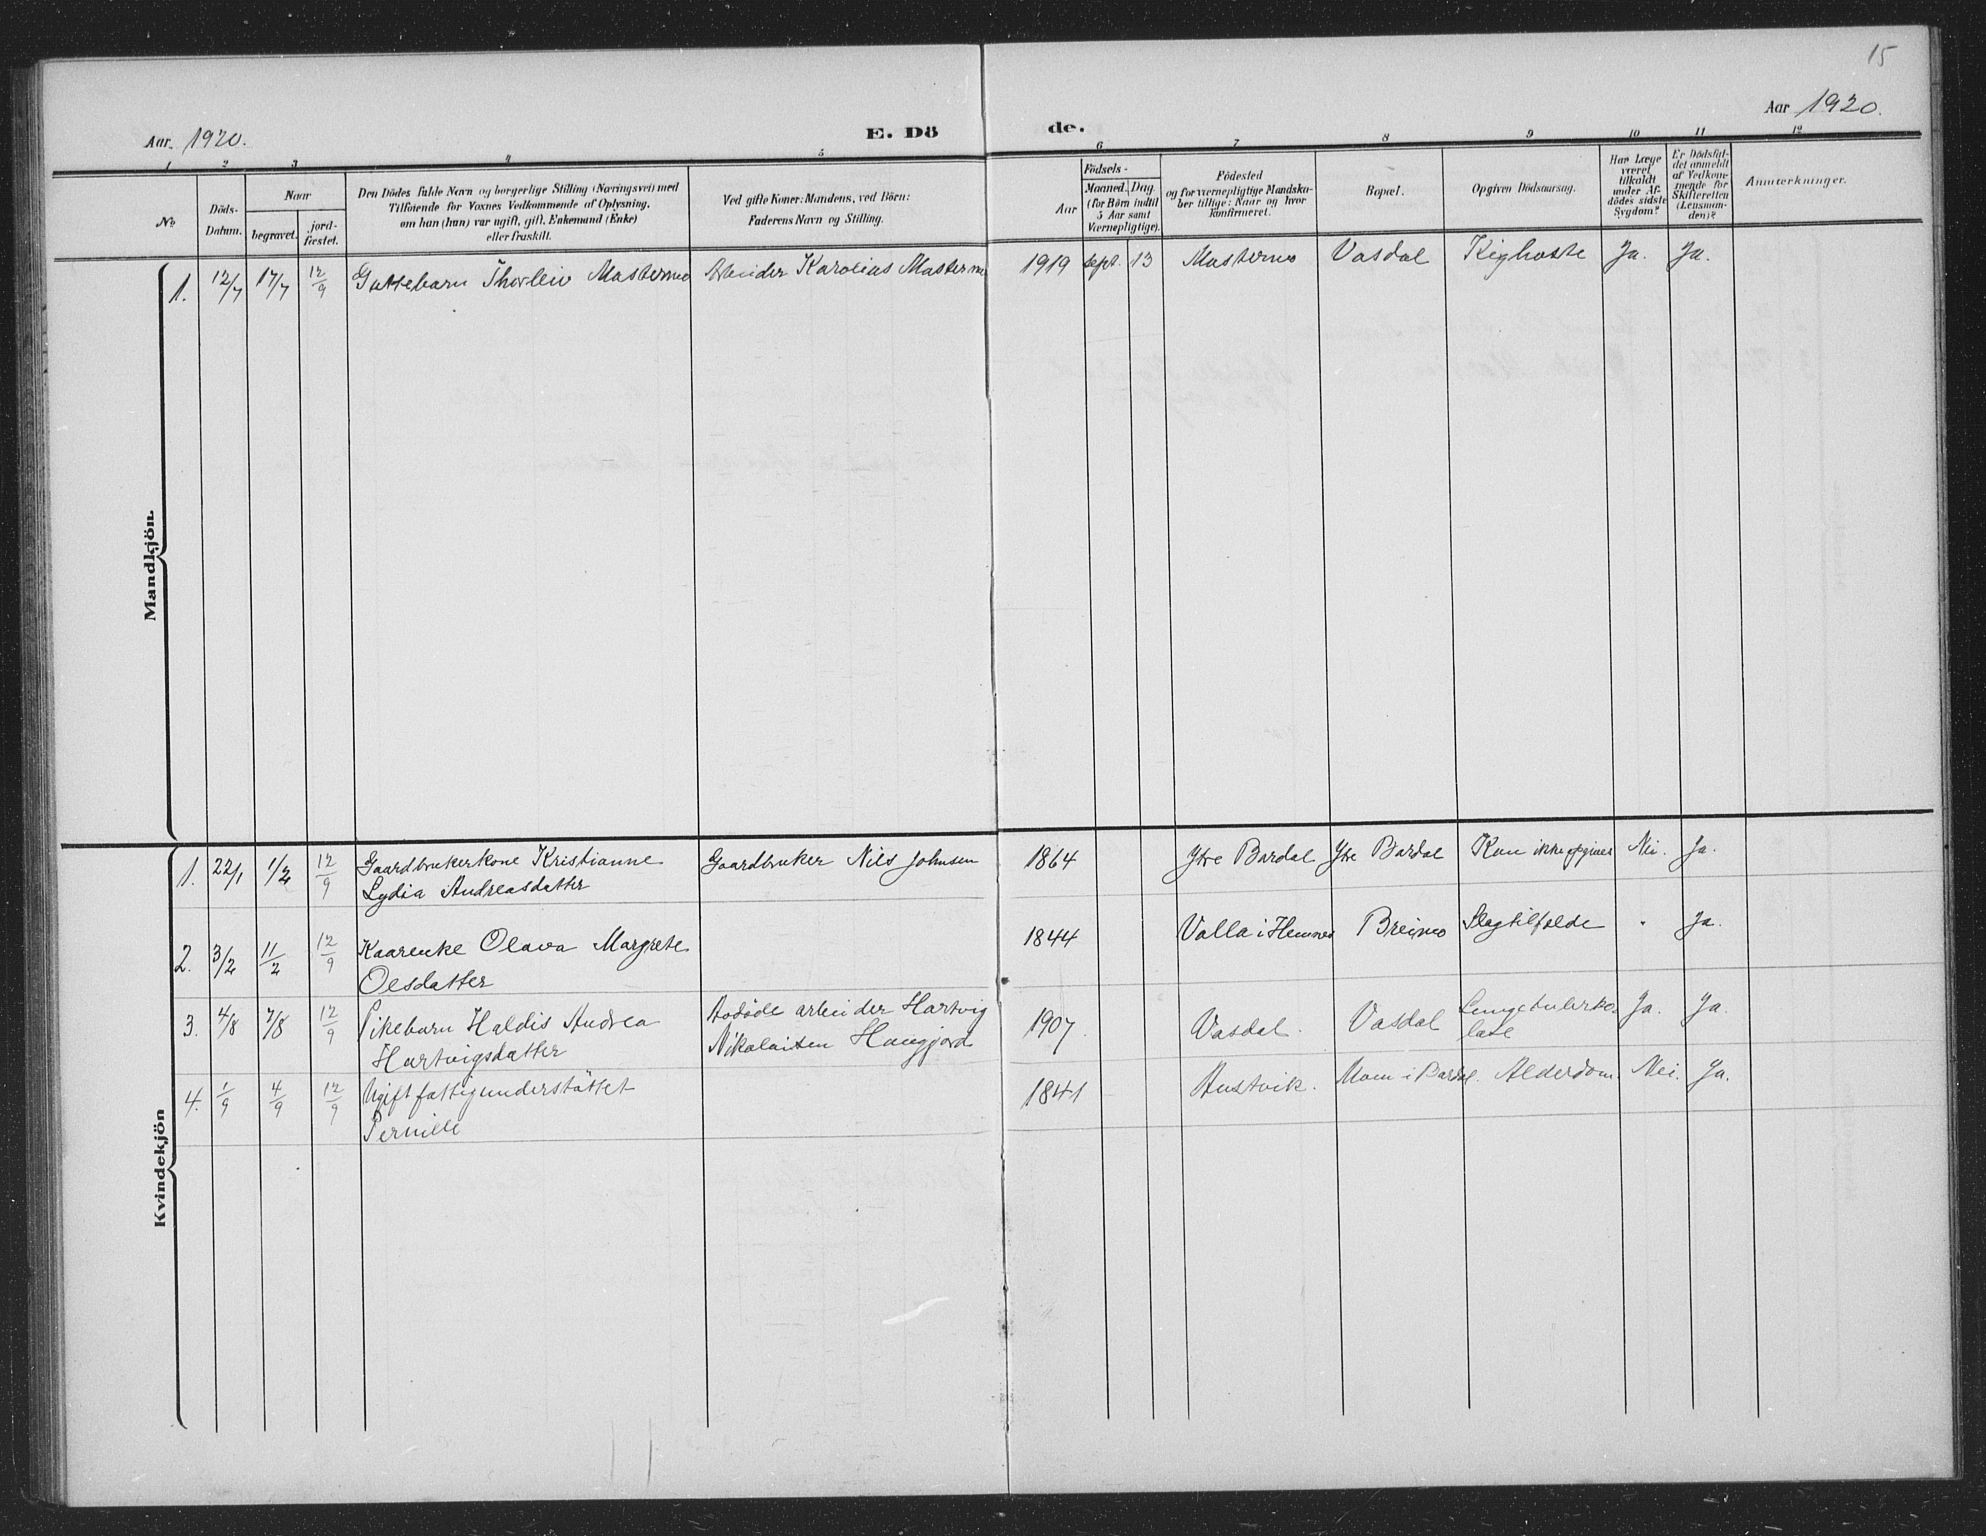 15
Aar. 1920.
E. Dö
de.
Aar 1920.
1 2 3 4 5 6 7 8 9 10 11 12
№
Döds-
Datum.
Naar
begravet.
jord-
fæstet.
Den Dödes fulde Navn og borgerlige Stilling (Næringsvei) med
Tilföiende for Voxnes Vedkommende af Oplysning,
om han (hun) var ugift, gift, Enkemand (Enke)
eller fraskilt.
Ved gifte Koner: Mandens, ved Börn:
Faderens Navn og Stilling.
Aar
Födsels-
Maaned. Dag
(for Börn indtil
5 Aar samt
Værnepligtige).
Födested
og for værnepligtige Mandska-
ber tillige: Naar og hvor
konfirmeret.
Bopæl.
Opgiven Dödsaarsag.
Har Læge
været
tilkaldt
under Af-
dödes sidste
Sygdom?
Er Dödsfal-
det anmeldt
af Vedkom-
mende for
Skifteretten
(Lensman-
den)?
Anmærkninger.
Mandkjön.
1. 12/7 17/7 12/9 Guttebarn Thorleiv Masternes Arbeider Karolius Masternes 1919 Sept. 13 Masternes Vasdal Kighoste Ja. Ja.
Kvindekjön
1. 22/1 1/2 12/9 Gaardbrukerkone Kristianne Gaardbruker Nils Johnsen 1864 Ytre Bardal Ytre Bardal Kan ikke opgives Nei. Ja.
Lydia Andreasdatter
2. 3/2 11/2 12/9 Kaarenke Olava Margrete 1844 Valla i Hemnes Breimo Slagtilfælde " Ja.
Olsdatter
3. 4/8 7/8 12/9 Pikebarn Haldis Andrea Avdøde arbeider Hartvig 1907. Vasdal. Vasdal Lungetuberku- Ja. Ja.
Hartvigsdatter Nikolaisen Haugjord lose
4. 1/9 4/9 12/9 Ugift fattigunderstöttet 1841 Hustvik. Moen i Bardal. Alderdom. Nei. Ja.
Pernille